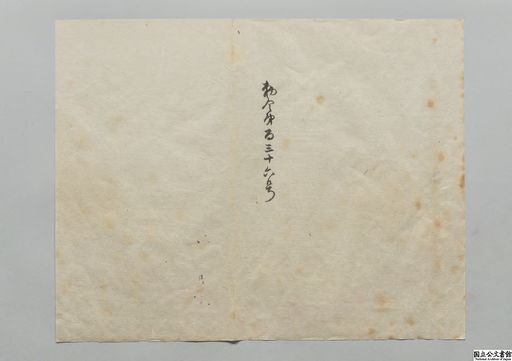 勅令第百三十六号
国立公文書館
National Archives of Japan